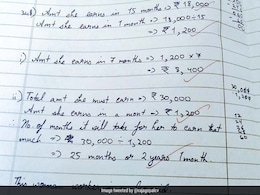 Amt she earns in 15 months => ₹ 18,000
Amt she earns in 1 month => 18,000÷15
=> ₹ 1,200
i) Amt she earns in 7 months => 1,200 × 7
=> ₹ 8,400
ii) Total amt she must earn => ₹ 30,000
Amt she earns in a month => ₹ 1,200
∴ No of months it will take for her to earn that
much => 30,000 ÷ 1,200
=> 25 months or 2 years 1 month.
Image tweeted by @rajagopalcv